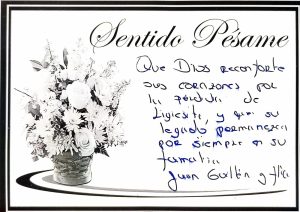 Sentido Pésame
Que Dios reconforte
sus corazones por
la pérdida de
y que su
legado permanezca
por siempre en su
familia
Juan Guillén y